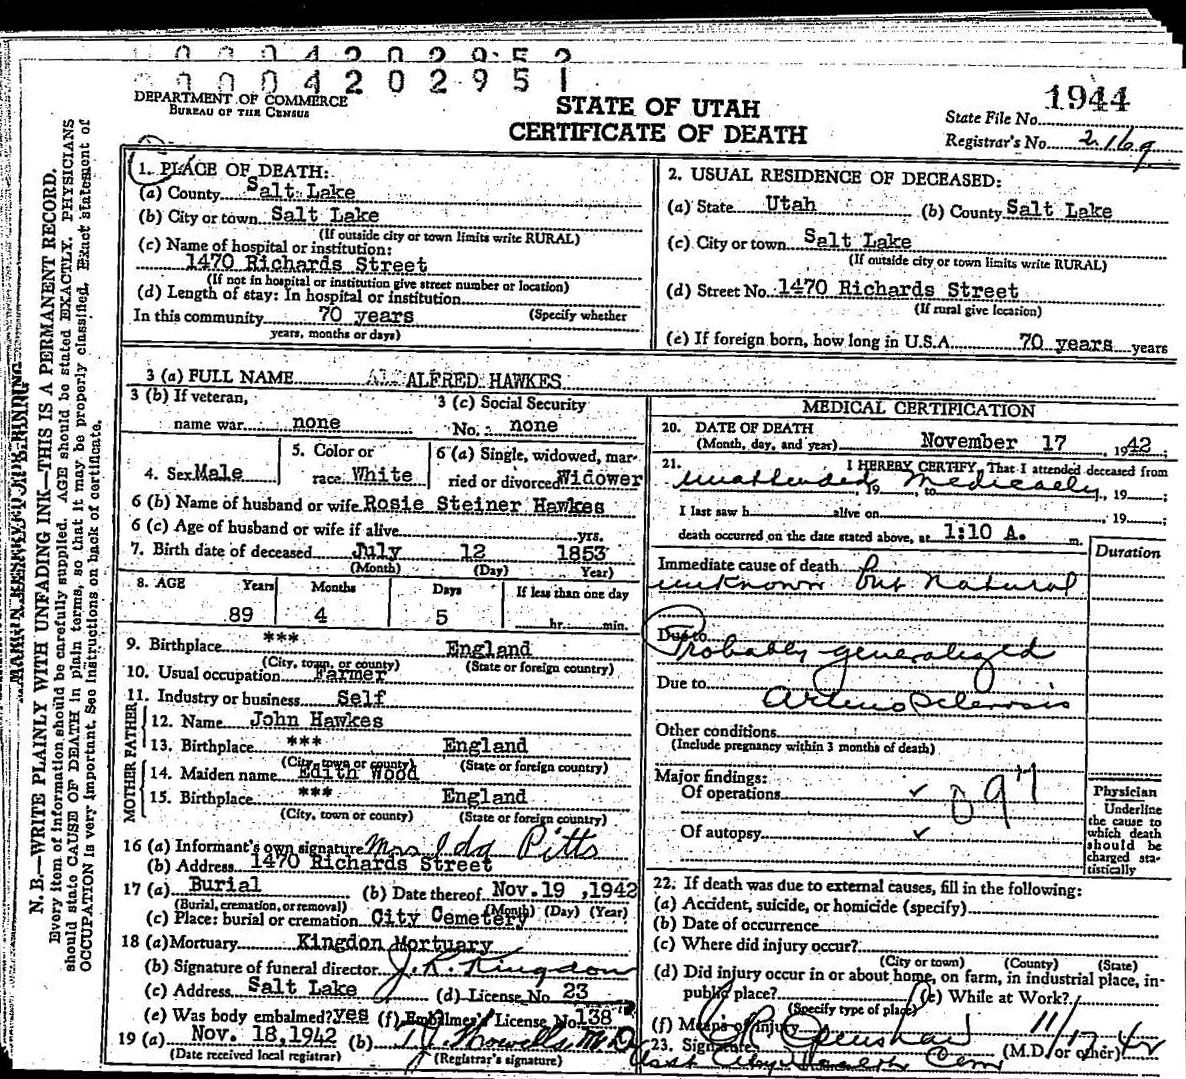 0000420295
00004202951
DEPARTMENT OF COMMERCE
BUREAU OF THE CENSUS
STATE OF UTAH
CERTIFICATE OF DEATH
1944
State File No.
Registrar's No. 2169
N. B.—WRITE PLAINLY WITH UNFADING INK—THIS IS A PERMANENT RECORD.
Every item of information should be carefully supplied. AGE should be stated EXACTLY. PHYSICIANS
should state CAUSE OF DEATH in plain terms, so that it may be properly classified. Exact statement of
OCCUPATION is very important. See instructions on back of certificate.
1. PLACE OF DEATH:
(a) County Salt Lake
(b) City or town Salt Lake
(If outside city or town limits write RURAL)
(c) Name of hospital or institution:
1470 Richards Street
(If not in hospital or institution give street number or location)
(d) Length of stay: In hospital or institution
In this community 70 years (Specify whether
years, months or days)
2. USUAL RESIDENCE OF DECEASED:
(a) State Utah (b) County Salt Lake
(c) City or town Salt Lake
(If outside city or town limits write RURAL)
(d) Street No. 1470 Richards Street
(If rural give location)
(e) If foreign born, how long in U.S.A. 70 years years
3 (a) FULL NAME ALFRED HAWKES
3 (b) If veteran,
name war none
3 (c) Social Security
No. none
4. Sex Male
5. Color or
race White
6 (a) Single, widowed, mar-
ried or divorced Widower
6 (b) Name of husband or wife Rosie Steiner Hawkes
6 (c) Age of husband or wife if alive yrs.
7. Birth date of deceased July 12 1853
(Month) (Day) Year)
8. AGE Years Months Days If less than one day
89 4 5 hr. min.
9. Birthplace *** England
(City, town, or county) (State or foreign country)
10. Usual occupation Farmer
11. Industry or business Self
FATHER
12. Name John Hawkes
13. Birthplace *** England
(City, town or county) (State or foreign country)
MOTHER
14. Maiden name Edith Wood
15. Birthplace *** England
(City, town or county) (State or foreign country)
16 (a) Informant's own signature Mrs Ida Pitts
(b) Address 1470 Richards Street
17 (a) Burial (b) Date thereof Nov.19 ,1942
(Burial, cremation, or removal) (Month) (Day) (Year)
(c) Place: burial or cremation City Cemetery
18 (a) Mortuary Kingdon Mortuary
(b) Signature of funeral director J. R. Kingdon
(c) Address Salt Lake (d) License No. 23
(e) Was body embalmed? yes (f) Embalmer's License No. 138
19 (a) Nov. 18,1942 (b)
(Date received local registrar) (Registrar's signature)
MEDICAL CERTIFICATION
20. DATE OF DEATH
(Month, day, and year) November 17 , 1942;
21. I HEREBY CERTIFY, That I attended deceased from
unattended, 19 , to Medically, 19 ;
I last saw h alive on , 19 ;
death occurred on the date stated above, at 1:10 A. m.
Duration
Immediate cause of death
unknown but natural
Due to
Probably generalized
Due to
Arteriosclerosis
Other conditions
(Include pregnancy within 3 months of death)
Major findings:
Of operations ✓
097
Of autopsy ✓
Physician
Underline
the cause to
which death
should be
charged sta-
tistically
22. If death was due to external causes, fill in the following:
(a) Accident, suicide, or homicide (specify)
(b) Date of occurrence
(c) Where did injury occur?
(City or town) (County) (State)
(d) Did injury occur in or about home, on farm, in industrial place, in
public place? (e) While at Work?
(Specify type of place)
(f) Means of injury 11/17 42
23. Signature (M.D. or other)
Asst City Health Com